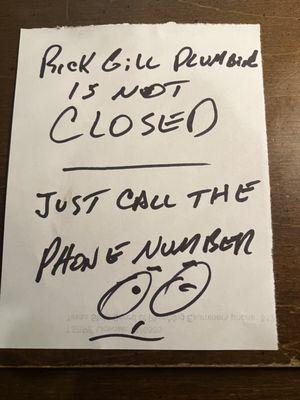 Rick Gill Plumbing
IS NOT
CLOSED
JUST CALL THE
PHONE NUMBER